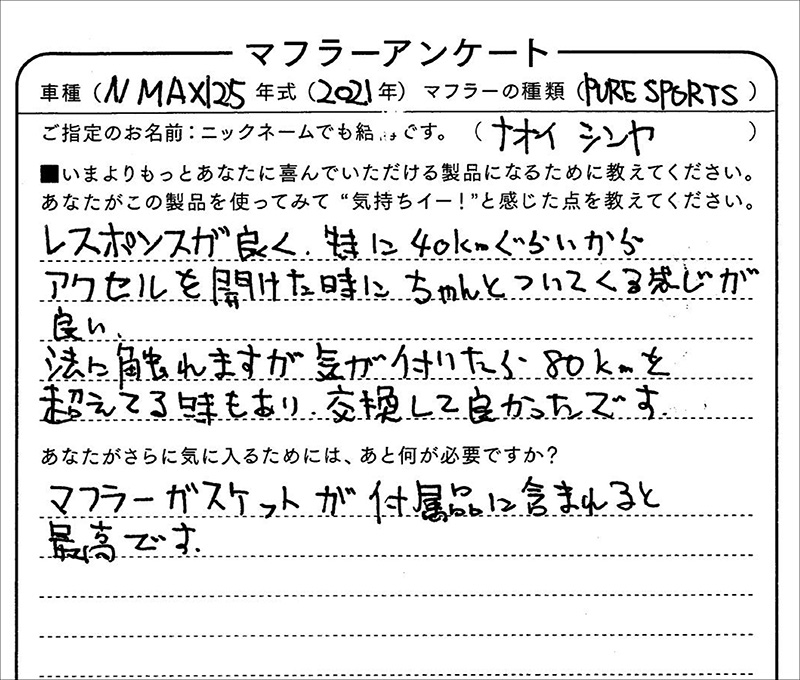 マフラーアンケート
車種（N MAX125 年式（2021年）マフラーの種類（PURE SPORTS）
ご指定のお名前：ニックネームでも結 です。（ナオイ シンヤ）
■いまよりもっとあなたに喜んでいただける製品になるために教えてください。
あなたがこの製品を使ってみて“気持ちイー！”と感じた点を教えてください。
レスポンスが良く、特に40kmぐらいから
アクセルを開けた時にちゃんとついてくる感じが
良い、
法に触れますが気が付いたら80kmを
超えてる時もあり、交換して良かったです。
あなたがさらに気に入るためには、あと何が必要ですか？
マフラーガスケットが付属品に含まれると
最高です。